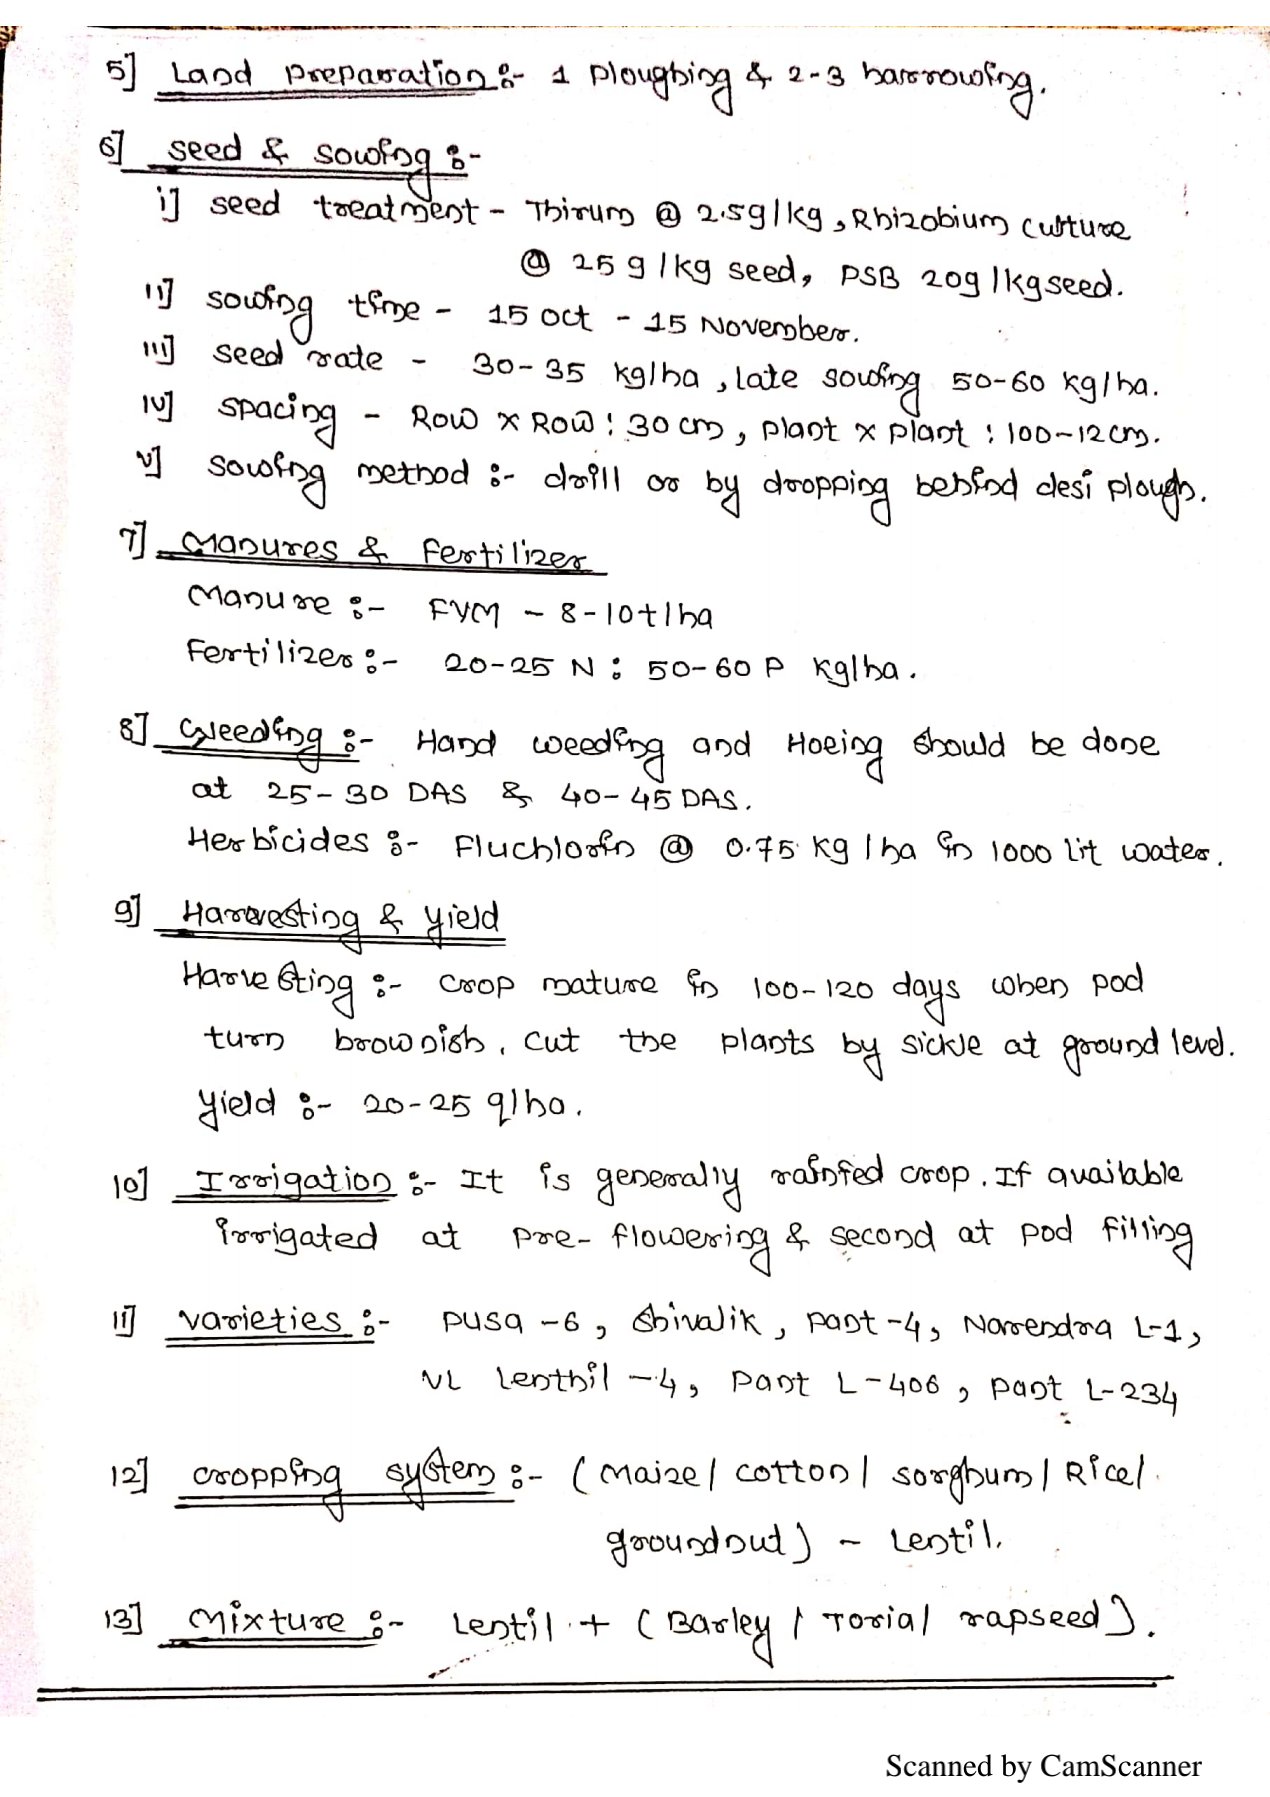 5] Land preparation :- 1 ploughing & 2-3 harrowing.
6] seed & sowing :-
i] seed treatment - Thirum @ 2.5g/kg, Rhizobium culture
@ 25 g/kg seed, PSB 20g/kg seed.
ii] sowing time - 15 oct - 15 November.
iii] seed rate - 30-35 kg/ha, late sowing 50-60 kg/ha.
iv] spacing - Row x Row : 30 cm, plant x plant : 100-12 cm.
v] sowing method :- drill or by dropping behind desi plough.
7] Manures & Fertilizer
Manure :- FYM - 8-10 t/ha
Fertilizer :- 20-25 N : 50-60 P kg/ha.
8] Weeding :- Hand weeding and Hoeing should be done
at 25-30 DAS & 40-45 DAS.
Herbicides :- Fluchlorin @ 0.75 kg/ha in 1000 lit water.
9] Harvesting & yield
Harvesting :- crop mature in 100-120 days when pod
turn brownish. cut the plants by sickle at ground level.
yield :- 20-25 q/ha.
10] Irrigation :- It is generally rainfed crop. If available
irrigated at pre-flowering & second at pod filling
11] varieties :- pusa-6, shivalik, pant-4, Narendra L-1,
VL Lenthil-4, pant L-406, pant L-234
12] cropping system :- (Maize/ cotton/ sorghum/ Rice/
groundnut) - Lentil.
13] Mixture :- Lentil + (Barley / Toria/ rapseed).
Scanned by CamScanner